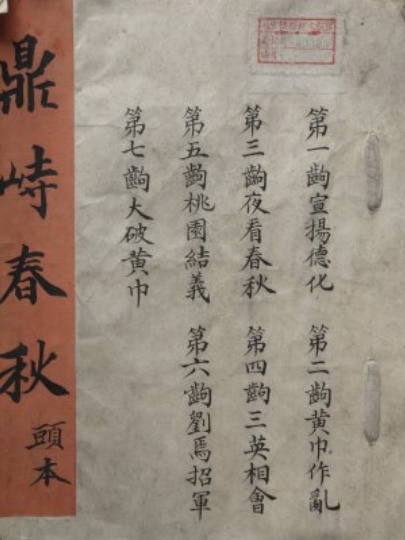 第一齣宣揚德化　第二齣黄巾作亂
第三齣夜看春秋　第四齣三英相會
第五齣桃園結義　第六齣劉焉招軍
第七齣大破黄巾
鼎峙春秋
頭本